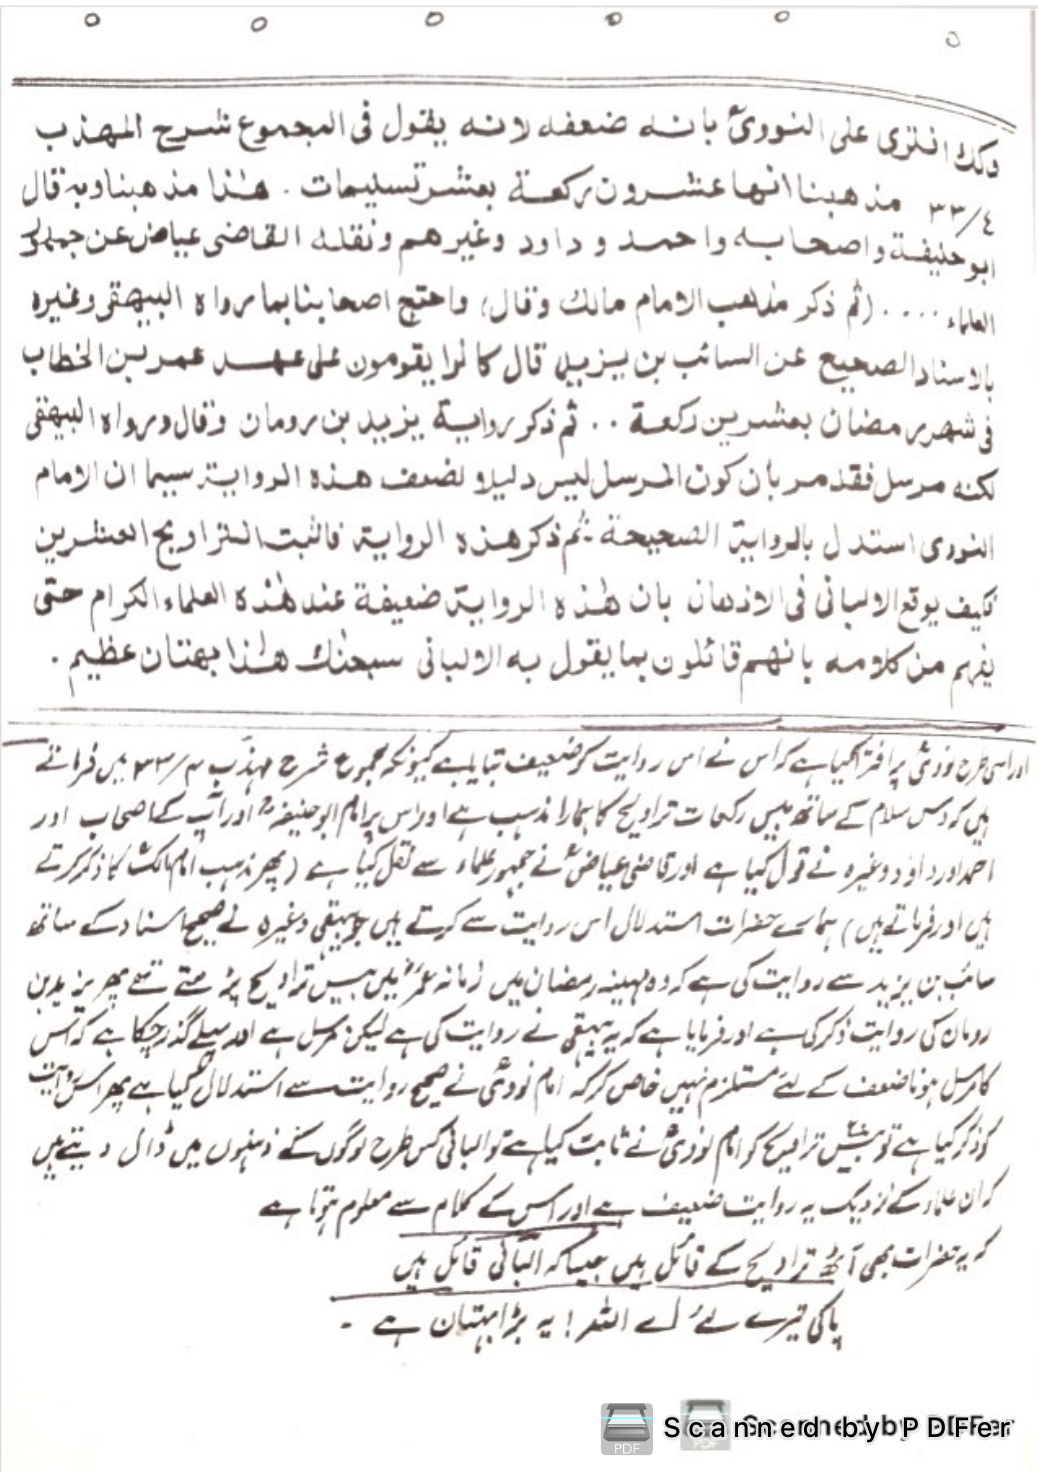 وكذلك افترى على النووىؒ بانه ضعفه لانه يقول فى المجموع شرح المهذب
٣٣/٤ مذهبنا انها عشرون ركعة بعشر تسليمات . هٰذا مذهبنا وبه قال
ابوحنيفة واصحابه واحمد و داود وغيرهم ونقله القاضى عياض عن جمهور
العلماء .... (ثم ذكر مذهب الامام مالك وقال) واحتج اصحابنا بما رواه البيهقى وغيره
بالاسناد الصحيح عن السائب بن يزيد قال كانوا يقومون على عهد عمر بن الخطاب
فى شهر رمضان بعشرين ركعة .. ثم ذكر رواية يزيد بن رومان وقال ورواه البيهقى
لكنه مرسل فقد مر بان كون المرسل ليس دليلا لضعف هذه الرواية سيما ان الامام
النووى استدل بالرواية الصحيحة ـ ثم ذكر هذه الرواية فاثبت التراويح العشرين
فكيف يوقع الالبانى فى الاذهان بان هٰذه الرواية ضعيفة عند هٰذه العلماء الكرام حتى
يفهم من كلامه بانهم قائلون بما يقول به الالبانى سبحٰنك هٰذا بهتان عظيم .
اور اسی طرح نوویؒ پر افترا کیا ہے کہ اس نے اس روایت کو ضعیف بتایا ہے کیونکہ مجموع شرح مہذب ۳۳/۴ میں فرماتے
ہیں کہ دس سلام کے ساتھ بیس رکعات تراویح کا ہمارا مذہب ہے اور اس پر امام ابوحنیفہؒ اور آپ کے اصحاب اور
احمد اور داؤد وغیرہ نے قول کیا ہے اور قاضی عیاضؒ نے جمہور علماء سے نقل کیا ہے (پھر مذہب امام مالک کا ذکر کرتے
ہیں اور فرماتے ہیں) ہمارے حضرات استدلال اس روایت سے کرتے ہیں جو بیہقی وغیرہ نے صحیح اسناد کے ساتھ
سائب بن یزید سے روایت کی ہے کہ وہ مہینہ رمضان میں زمانہ عمرؓ میں بیس تراویح پڑھتے تھے پھر یزید بن
رومان کی روایت ذکر کی ہے اور فرمایا ہے کہ یہ بیہقی نے روایت کی ہے لیکن مرسل ہے اور پہلے گذر چکا ہے کہ اس
کا مرسل ہونا ضعف کے لئے مستلزم نہیں خاص کر کہ امام نوویؒ نے صحیح روایت سے استدلال کیا ہے پھر اس روایت
کو ذکر کیا ہے تو بیس ۲۰ تراویح کو امام نوویؒ نے ثابت کیا ہے تو البانی کس طرح لوگوں کے ذہنوں میں ڈال دیتے ہیں
کہ ان علماء کے نزدیک یہ روایت ضعیف ہے اور اس کے کلام سے معلوم ہوتا ہے
کہ یہ حضرات بھی آٹھ تراویح کے قائل ہیں جیسا کہ البانی قائل ہیں
پاکی تیرے لئے اے اللہ ! یہ بڑا بہتان ہے ۔
Scanned by PDFer